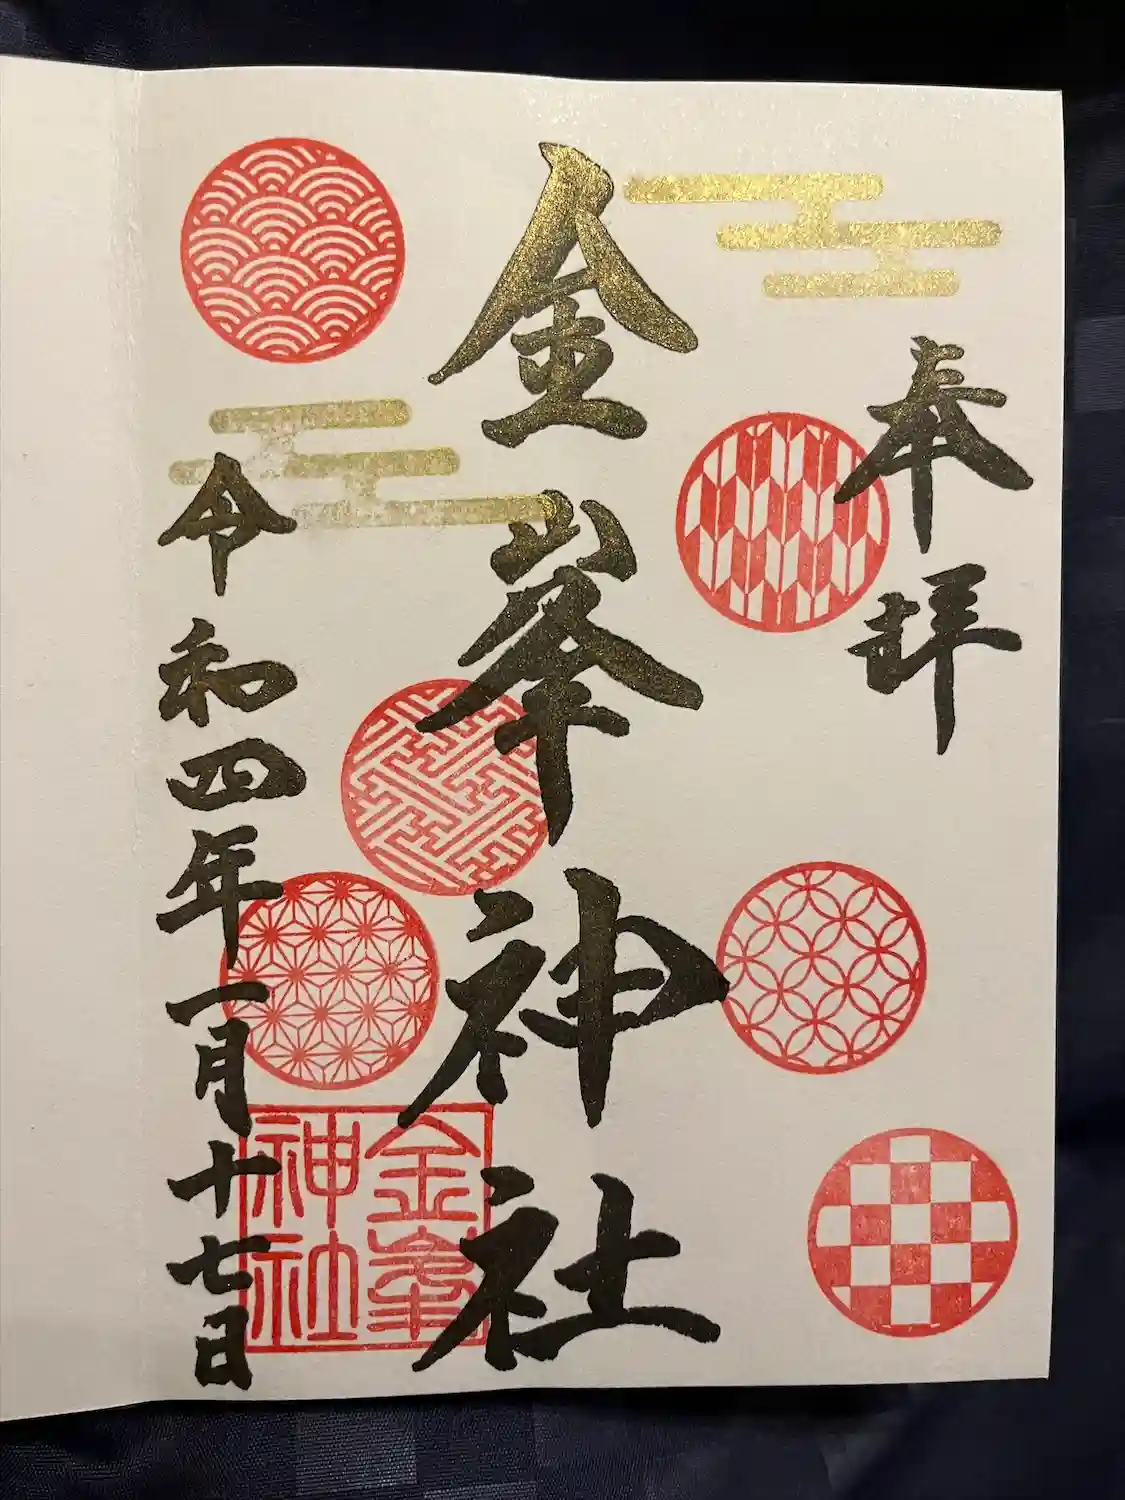 奉拝
金峯神社
金峯神社
令和四年一月十七日